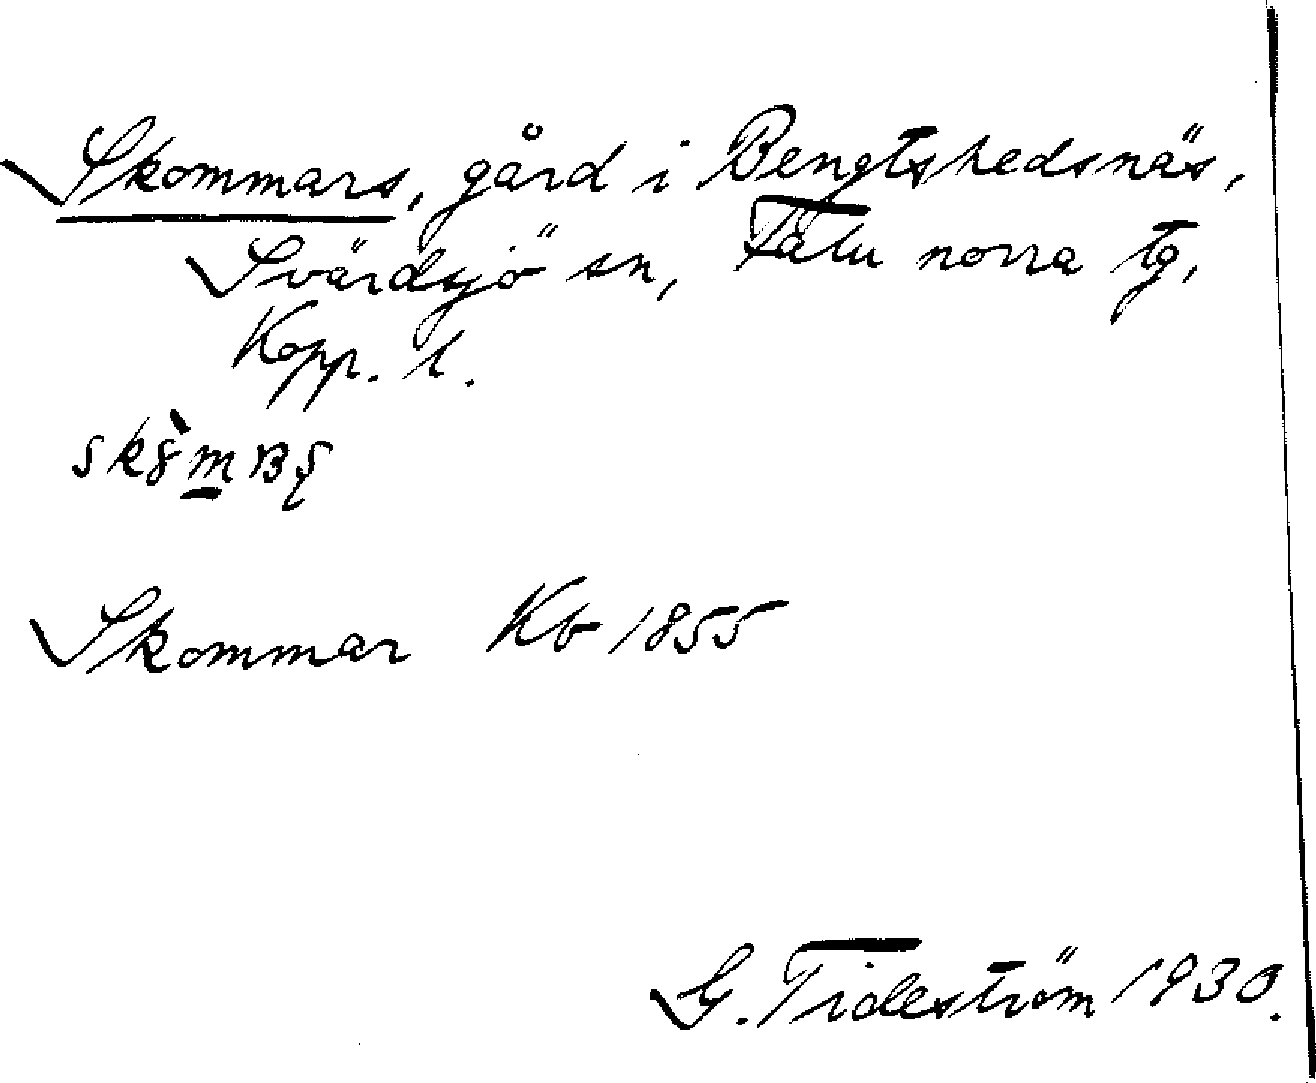 Skommars, gård i Bengtshedsnäs,
Svärdsjö sn, Falu norra tg,
Kopp. l.
Skommar Kb 1855
G. Tideström 1930.